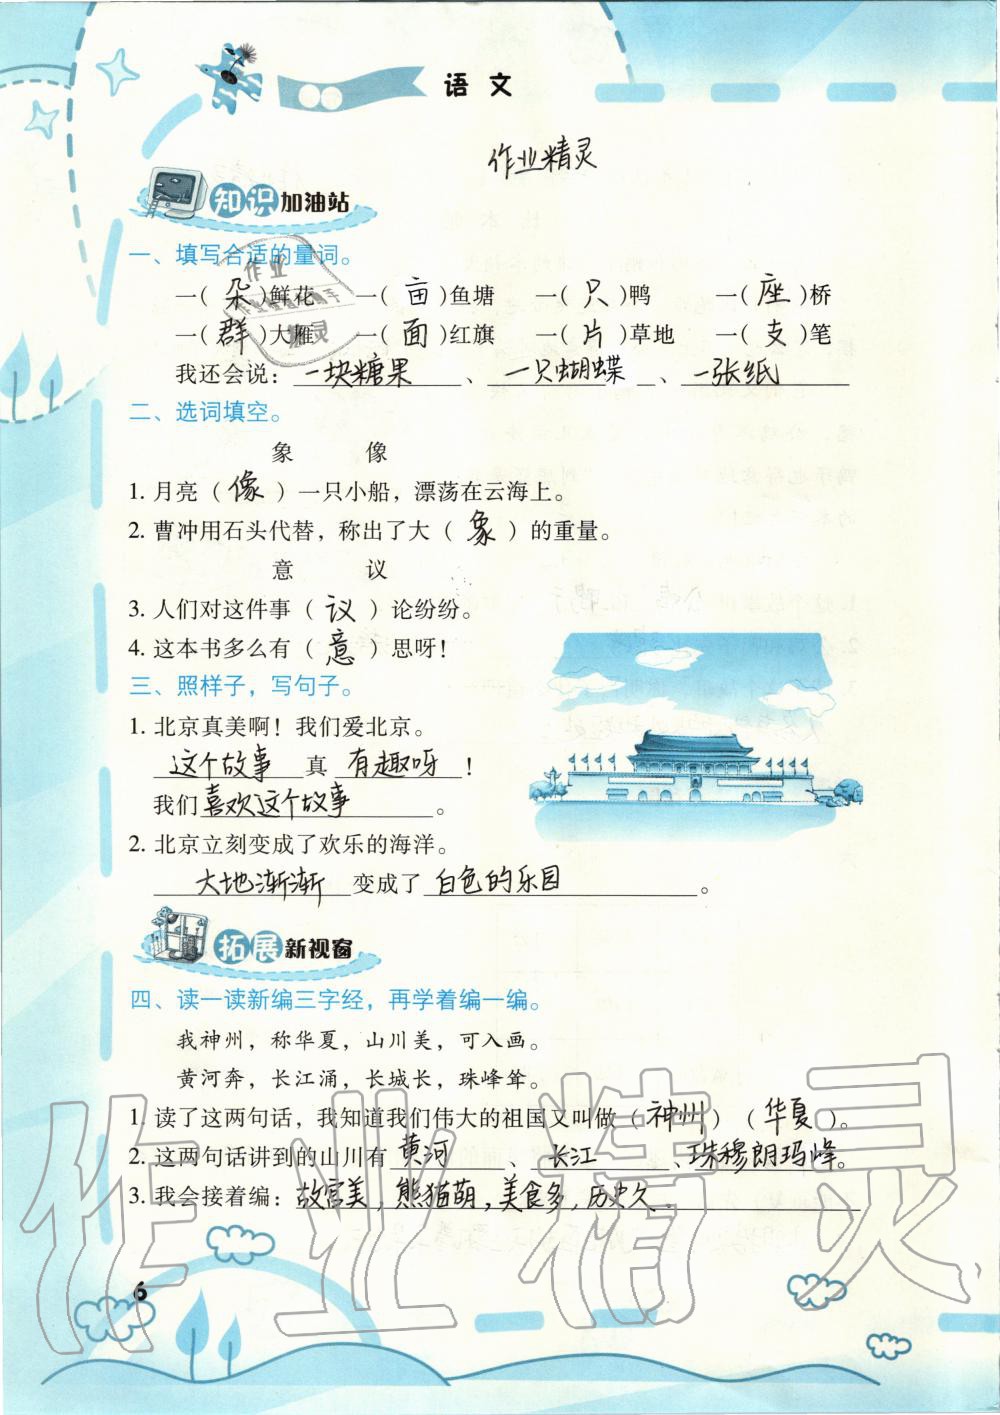 语 文
作业精灵
知识加油站
一、填写合适的量词。
一(朵)鲜花 一(亩)鱼塘 一(只)鸭 一(座)桥
一(群)大雁 一(面)红旗 一(片)草地 一(支)笔
我还会说：一块糖果、一只蝴蝶、一张纸
二、选词填空。
象 像
1. 月亮（像）一只小船，漂荡在云海上。
2. 曹冲用石头代替，称出了大（象）的重量。
意 议
3. 人们对这件事（议）论纷纷。
4. 这本书多么有（意）思呀！
三、照样子，写句子。
1. 北京真美啊！我们爱北京。
这个故事 真 有趣呀！
我们喜欢这个故事。
2. 北京立刻变成了欢乐的海洋。
大地渐渐 变成了 白色的乐园。
拓展新视窗
四、读一读新编三字经，再学着编一编。
我神州，称华夏，山川美，可入画。
黄河奔，长江涌，长城长，珠峰耸。
1. 读了这两句话，我知道我们伟大的祖国又叫做（神州）（华夏）。
2. 这两句话讲到的山川有 黄河、长江、珠穆朗玛峰。
3. 我会接着编：故宫美，熊猫萌，美食多，历史久。
6
作业精灵